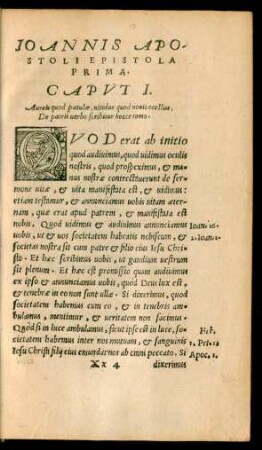 IOANNIS APO-
STOLI EPISTOLA
PRIMA.
CAPVT I.
Aureis quod patulæ, nitidus quod novit ocellus,
De patris verbo scribitur hocce tomo.
QVOD erat ab initio
quod audiuimus, quod uidimus oculis
nostris, quod prospeximus, & manus
nostræ contrectauerunt de ser-
mone uitæ, & uita manifestata est, & uidimus:
etiam testamur, & annunciamus uobis uitam æter-
nam, quæ erat apud patrem, & manifestata est
nobis. Quod uidimus & audiuimus annunciamus
uobis, ut & uos societatem habeatis nobiscum, &
societas nostra sit cum patre & filio eius Iesu Chri-
sto. Et hæc scribimus uobis, ut gaudium uestrum
sit plenum. Et hæc est promissio quam audiuimus
ex ipso & annunciamus uobis, quod Deus lux est,
& tenebræ in eo non sunt ullæ. Si dixerimus, quod
societatem habemus cum eo, & in tenebris am-
bulamus, mentimur, & ueritatem non facimus.
Quòd si in luce ambulamus, sicut ipse est in luce, so-
cietatem habemus inter nos mutuam, & sanguinis
Iesu Christi filij eius emundat nos ab omni peccato. Si
Xx 4 dixerimus
Heb.
1. Pet.
Apoc. 1.